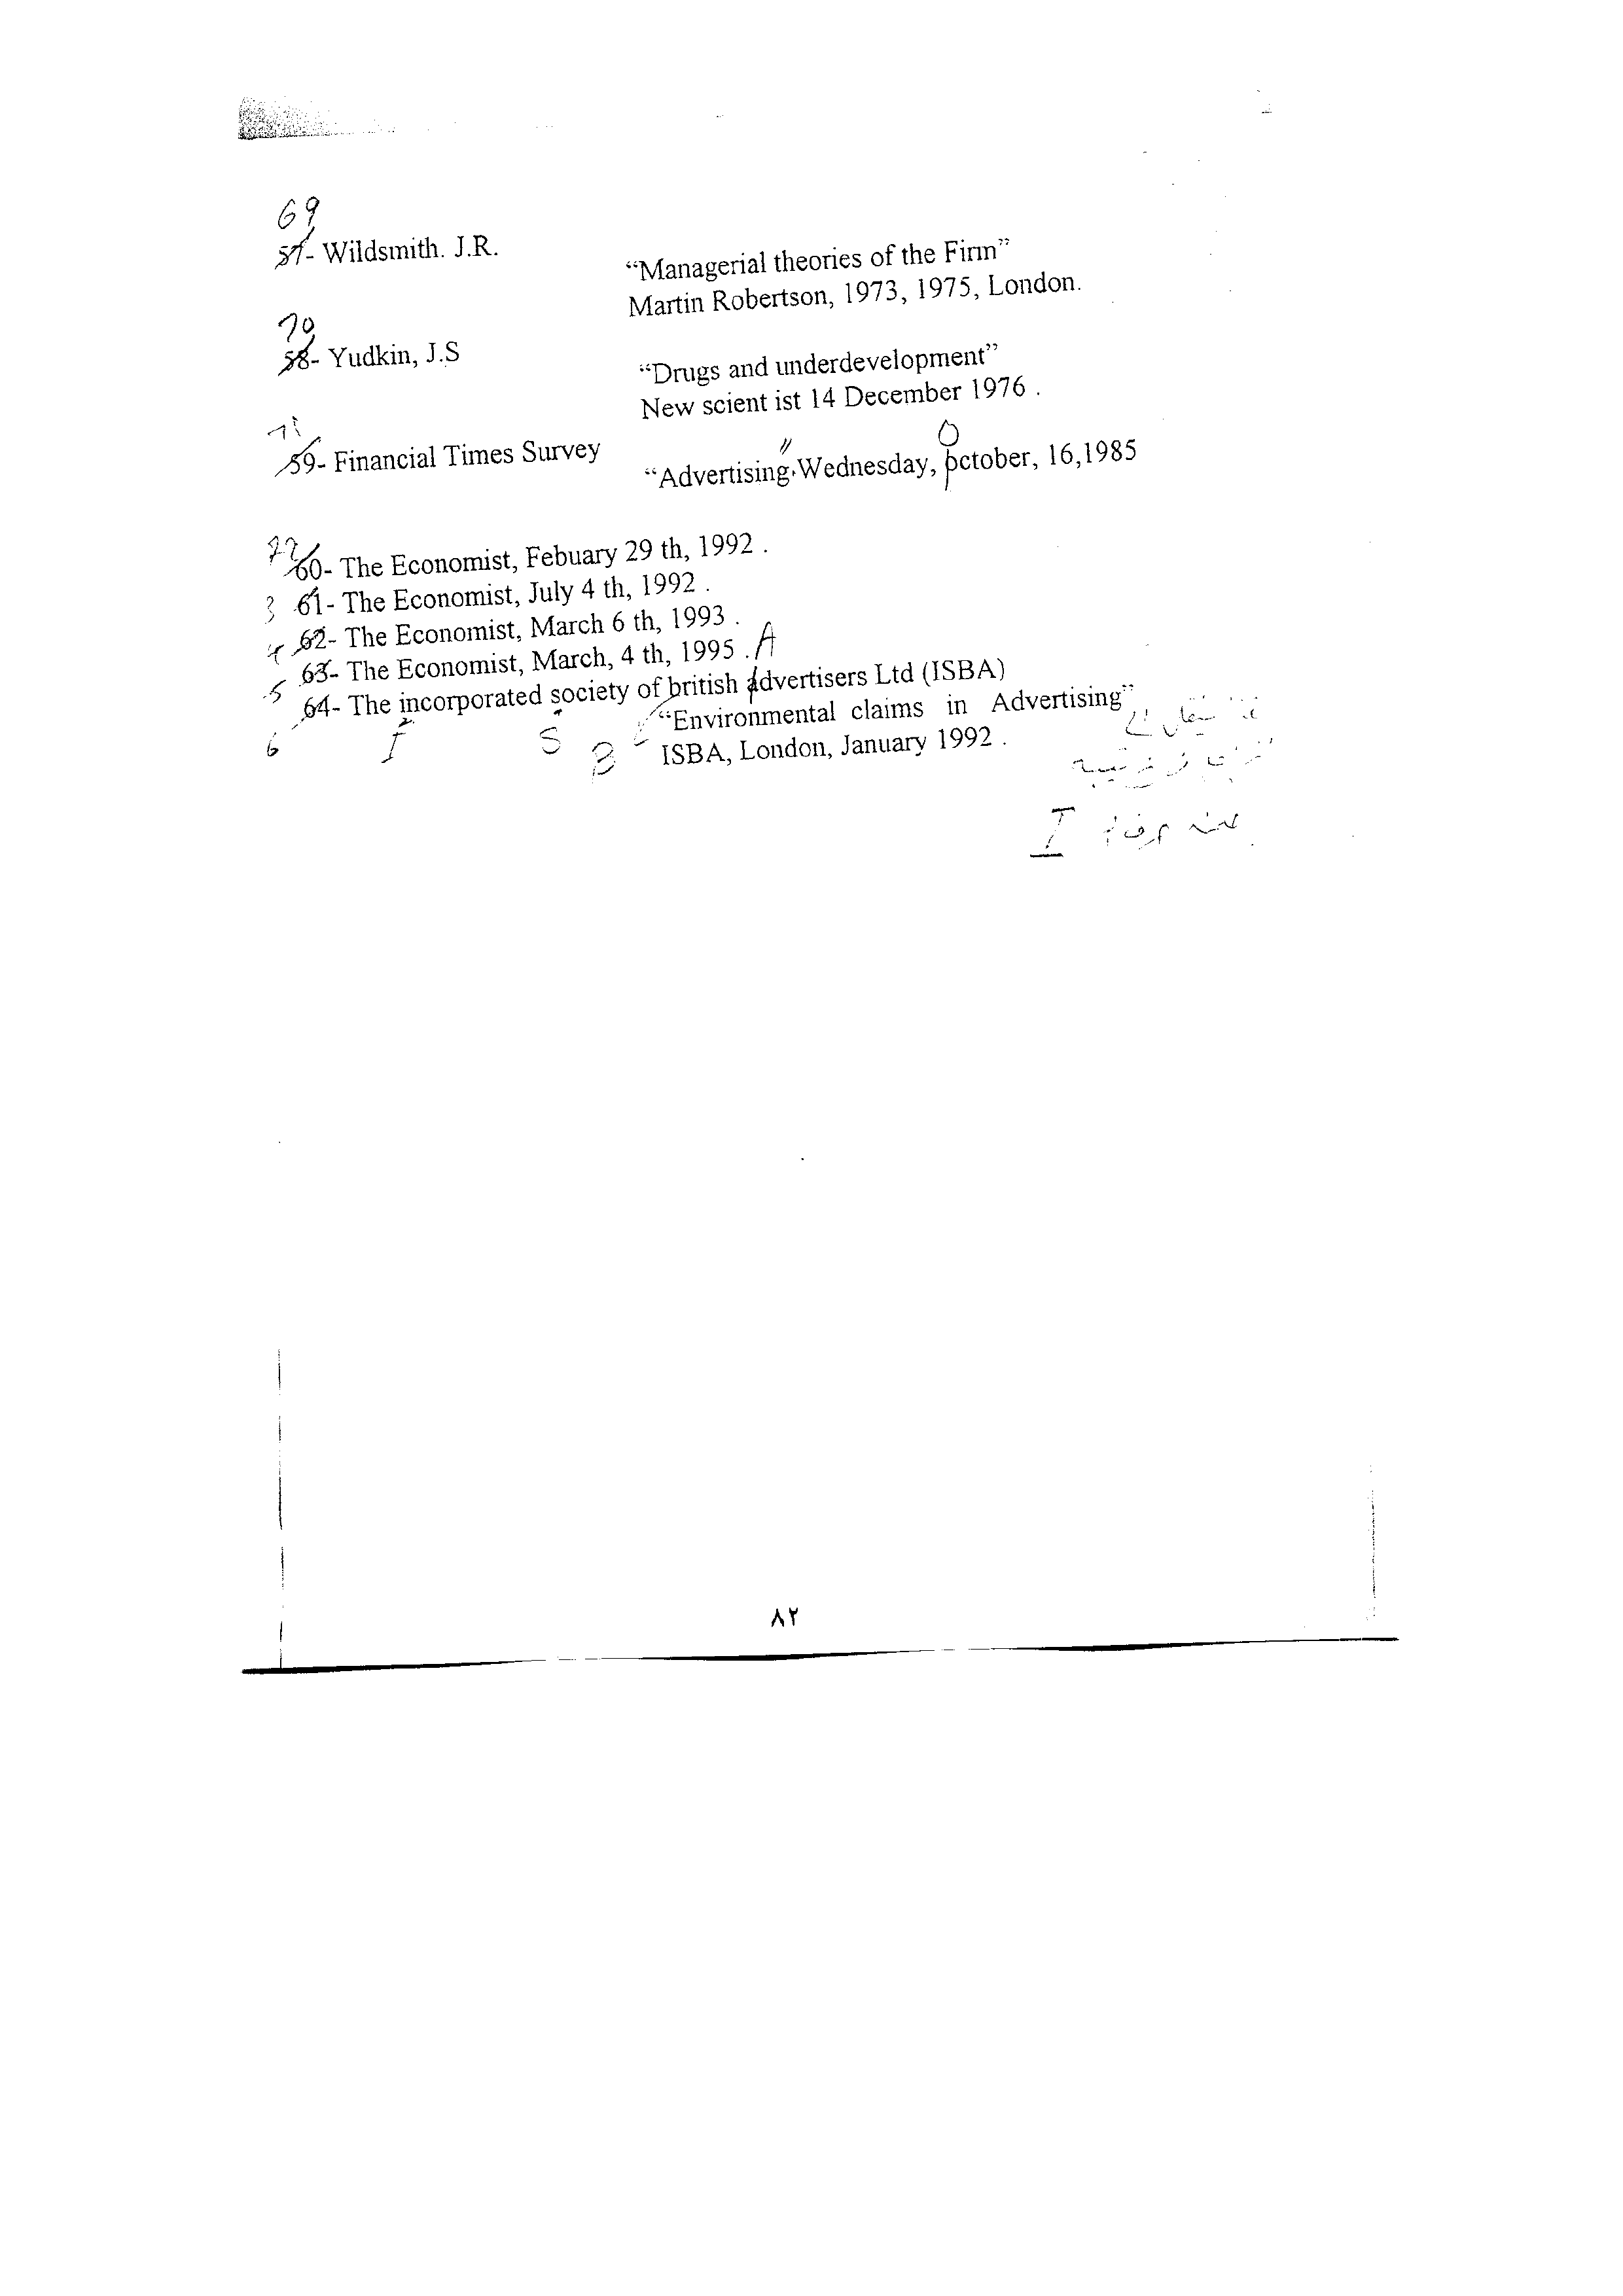 69
57- Wildsmith. J.R.
“Managerial theories of the Firm”
Martin Robertson, 1973, 1975, London.
70
58- Yudkin, J.S
“Drugs and underdevelopment”
New scient ist 14 December 1976 .
71
59- Financial Times Survey
" O
“Advertising.Wednesday, october, 16,1985
72
60- The Economist, Febuary 29 th, 1992 .
3 61- The Economist, July 4 th, 1992 .
4 62- The Economist, March 6 th, 1993 .
5 63- The Economist, March, 4 th, 1995 . A
64- The incorporated society of british advertisers Ltd (ISBA)
“Environmental claims in Advertising”
6 I S B
ISBA, London, January 1992 .
I
٨٢